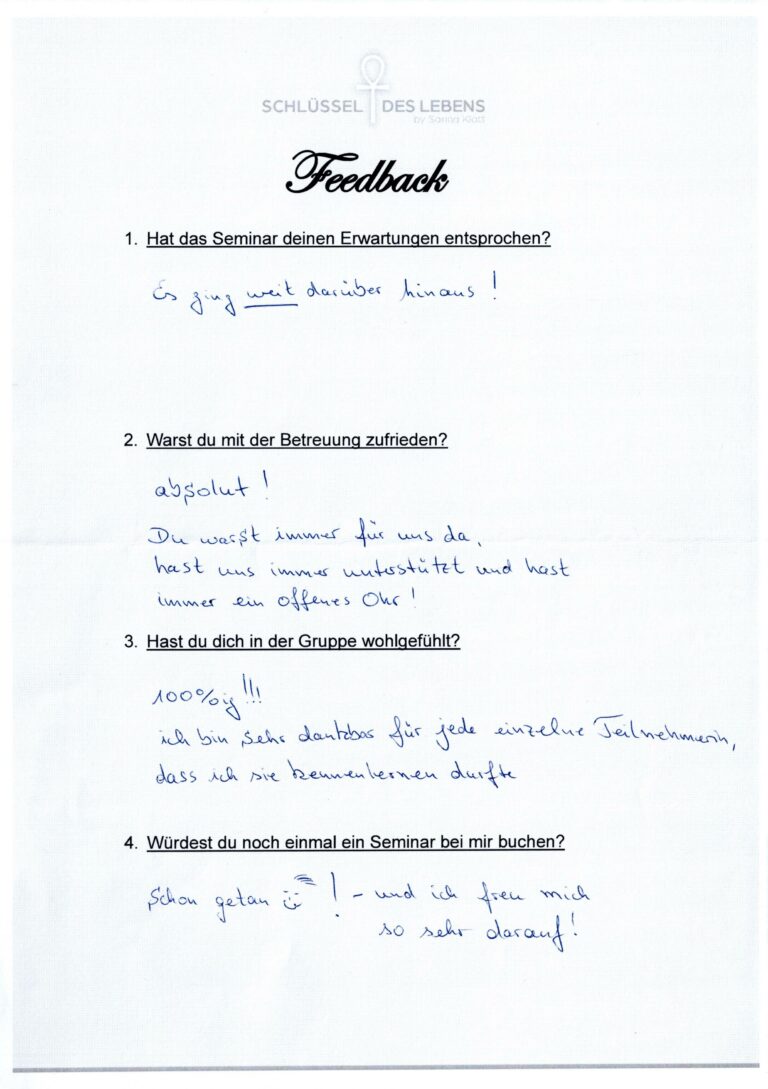 SCHLÜSSEL DES LEBENS
by Sarina Klatt
Feedback
1. Hat das Seminar deinen Erwartungen entsprochen?
Es ging weit darüber hinaus!
2. Warst du mit der Betreuung zufrieden?
absolut!
Du warst immer für uns da,
hast uns immer unterstützt und hast
immer ein offenes Ohr!
3. Hast du dich in der Gruppe wohlgefühlt?
100%ig!!!
ich bin sehr dankbar für jede einzelne Teilnehmerin,
dass ich sie kennenlernen durfte
4. Würdest du noch einmal ein Seminar bei mir buchen?
Schon getan ! - und ich freu mich
so sehr darauf!